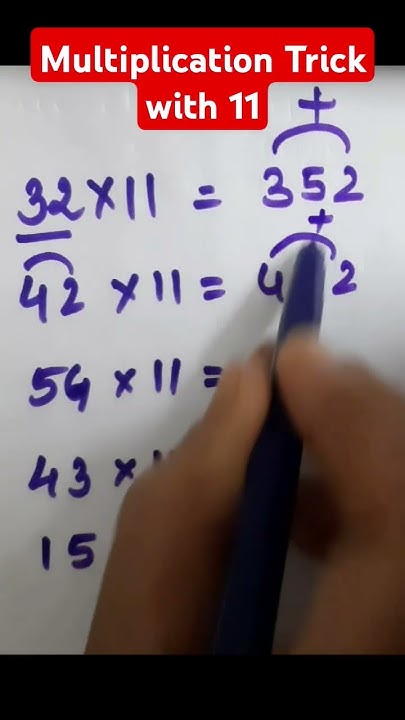 Multiplication Trick
with 11
32 × 11 = 352
42 × 11 = 4 2
54 × 11 =
43 ×
15